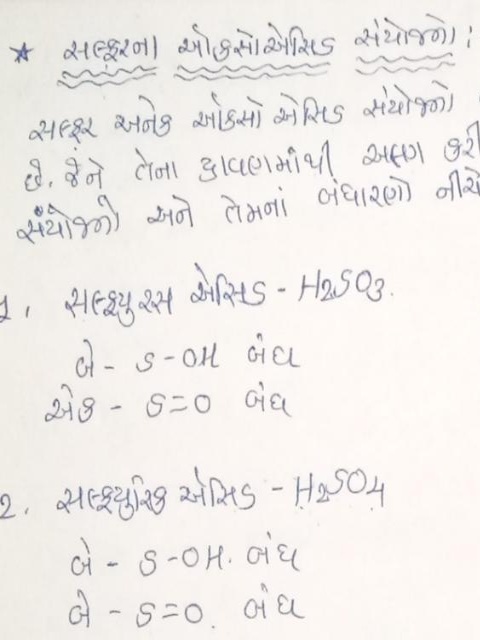 ★ સલ્ફરના ઓકસોએસિડ સંયોજનો :
સલ્ફર અનેક ઓકસો એસિડ સંયોજનો
છે. જેને તેના દ્રાવણમાંથી અલગ કરી
સંયોજનો અને તેમનાં બંધારણો નીચે
1. સલ્ફયુરસ એસિડ - H2SO3.
બે - S-OH બંધ
એક - S=O બંધ
2. સલ્ફયુરિક એસિડ - H2SO4
બે - S-OH. બંધ
બે - S=O. બંધ